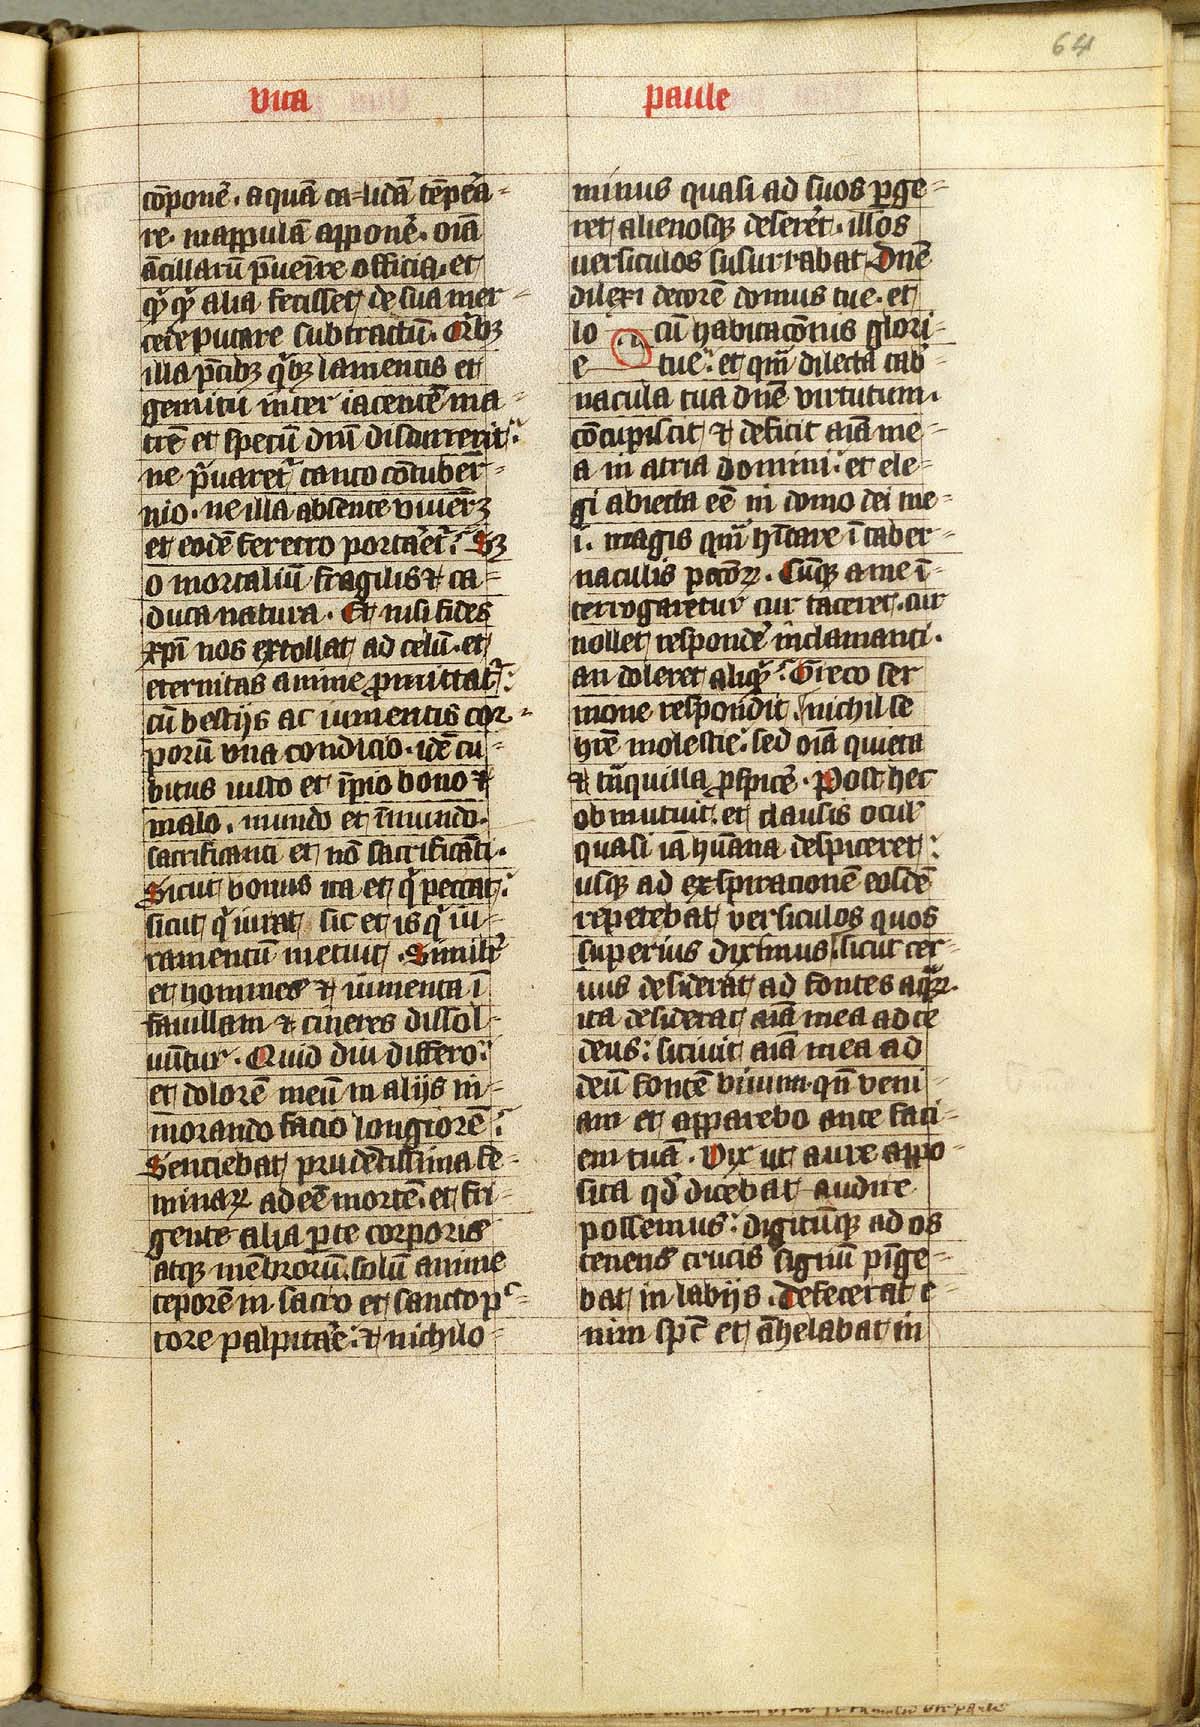 64
vita paule
cōponē. aquā ca-lidā tēpera-
re. mappulā apponē. oīa
ācillarū p̄uenīre officia. et
qͥcqͥd alia fecisset de sua mer-
cede putare subtractū. Orbꝫ
illa p̄cibꝫ qͥbꝫ lamentis et
gemitu inter iacentē ma-
trē et specū dn̄i discurrerit.
ne p̄uaretᷣ tanto cōtubern-
nio. ne illa absente viueret
et eodē feretro portaret. Sꝫ
o mortaliū fragilis ⁊ ca-
duca natura. Et nisi fides
xp̄i nos extollat ad celū. et
eternitas anime ꝓmittatᷣ.
cū bestijs ac iumentis cor-
porū vna condicio. idē cu-
bitus iusto et īpio bono ⁊
malo. mundo et īmundo.
sacrificanti et nō sacrificāti.
Sicut bonus ita et qͥ peccat.
sicut qͥ iurat sic et is qͥ iu-
ramentū metuit. Similitᷣ
et homines ⁊ iumenta ī
fauillam ⁊ cineres dissol-
uūtur. Quid diu differo.
et dolorē meū in alijs in-
morando facio longiorē.
Sentiebat prudētissima fe-
minaꝝ adeē mortē. et fri-
gente alia ꝑte corporis
atqꝫ mēbrorū. solū anime
teporē in sacro et sancto pͨ-
tore palpitare. ⁊ nichilo-
minus quasi ad suos ꝑge-
ret alienosqꝫ deseret. illos
uersiculos susurrabat Dn̄e
dilexi decorē domus tue. et
lo cū habitacōnis glori-
e tue. et qm̄ dilecta tab-
nacula tua dn̄e virtutum.
cōcupiscit ⁊ deficit aīa me-
a in atria domini. et ele-
gi abiecta eē in domo dei me-
i. magis qm̄ h̄itare ī taber-
naculis pctōꝝ. Cūqꝫ a me ī-
terrogaretur cur taceret. cur
nollet respondē inclamanti.
an doleret aliqͥd. Greco ser
mone respondit nichil se
hr̄e molestie. sed oīa quieta
⁊ trāquilla ꝓspicē. Post hec
obmutuit. et clausis oculᷣ
quasi iā hūana despiceret.
usqꝫ ad exspiracionē eosdē
repetebat versiculos quos
superius diximus. sicut cer-
uus desiderat ad fontes aqͣꝝ.
ita desiderat aīa mea ad te
deus. sitiuit aīa mea ad
deū fontē viuum. qn̄ veni-
am et apparebo ante faci-
em tuā. Vix ut aure appo-
sita qd̄ dicebat audire
possemus. digitūqꝫ ad os
tenens crucis signū pīge-
bat in labijs. Defecerat e-
nim spc̄ et āhelabat in